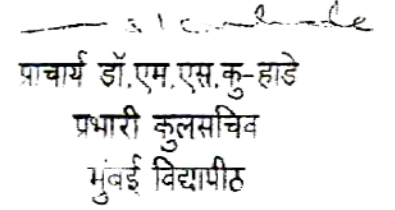 प्राचार्य डॉ.एम.एस.कु-हाडे
प्रभारी कुलसचिव
मुंबई विद्यापीठ